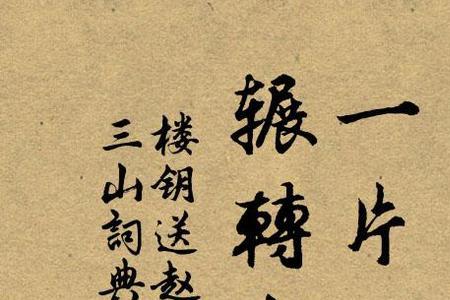 一片
辗轉
楼钥送赵
三山詞典